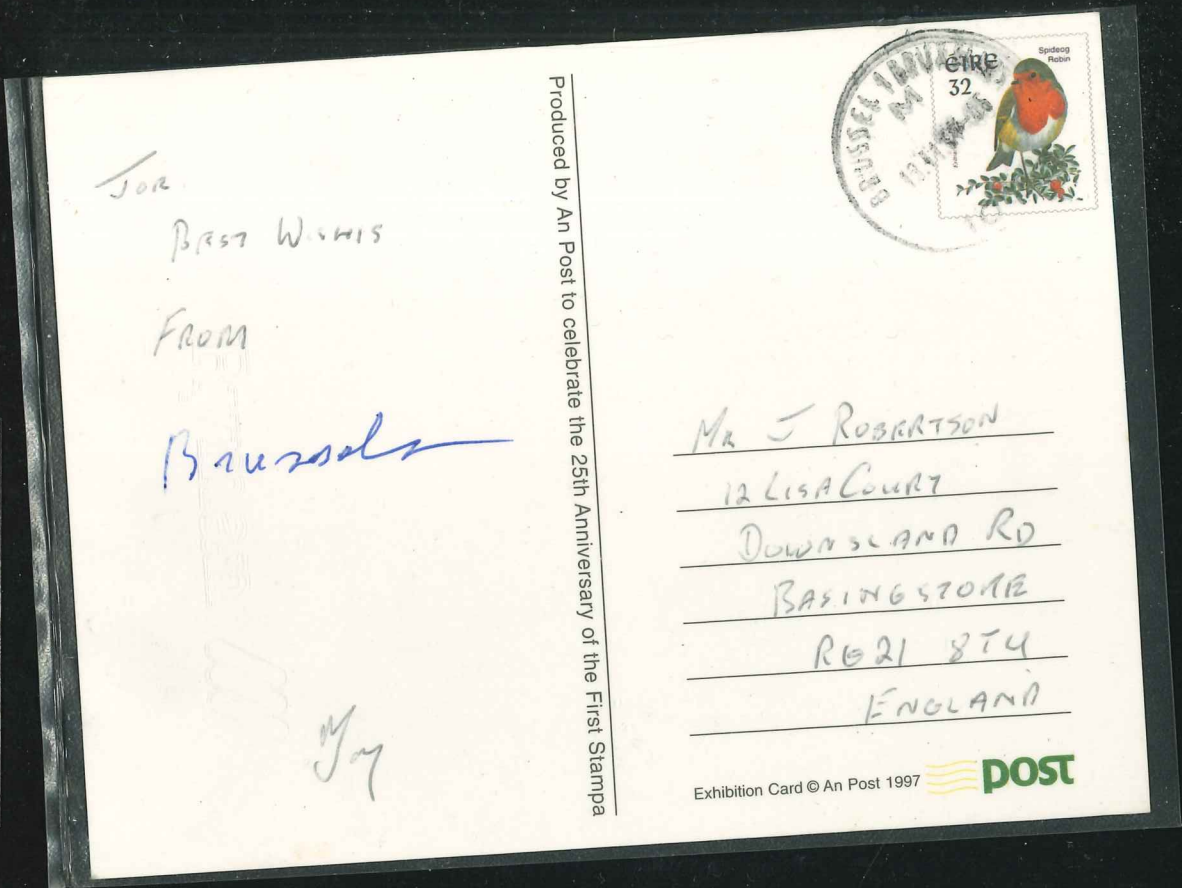 JOE
BEST WISHES
FROM
Brussels
Produced by An Post to celebrate the 25th Anniversary of the First Stampa
BRUSSEL 1 BRUXELLES
M
ÉIRE
32
Spideog
Robin
MR J ROBERTSON
12 LISA COURT
DOWNSLAND RD
BASINGSTOKE
RG21 8TU
ENGLAND
Exhibition Card © An Post 1997
post